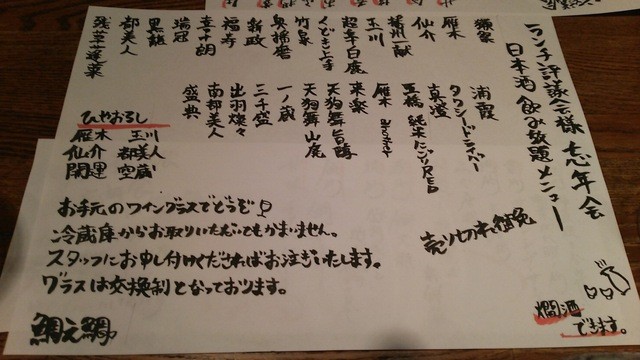 ランチ評議会様 忘年会
日本酒 飲み放題メニュー
獺祭
雁木
仙介
播州一献
玉川
超辛白鹿
くどき上手
竹泉
奥播磨
新政
福寿
喜一郎
瑞冠
黒龍
都美人
浦霞
タクシードライバー
真澄
豆橋 純米にごりRED
雁木
来楽
天狗舞 旨醇
天狗舞 山廃
一ノ蔵
三千盛
出羽燦々
南部美人
盛典
ひやおろし
雁木 玉川
仙介 都美人
開運 空蔵
お手元のワイングラスでどうぞ
冷蔵庫からお取りいただいてもかまいません。
スタッフにお申し付けくださればお注ぎいたします。
グラスは交換制となっております。
売り切れ御免
燗酒
できます。
鯛之鯛